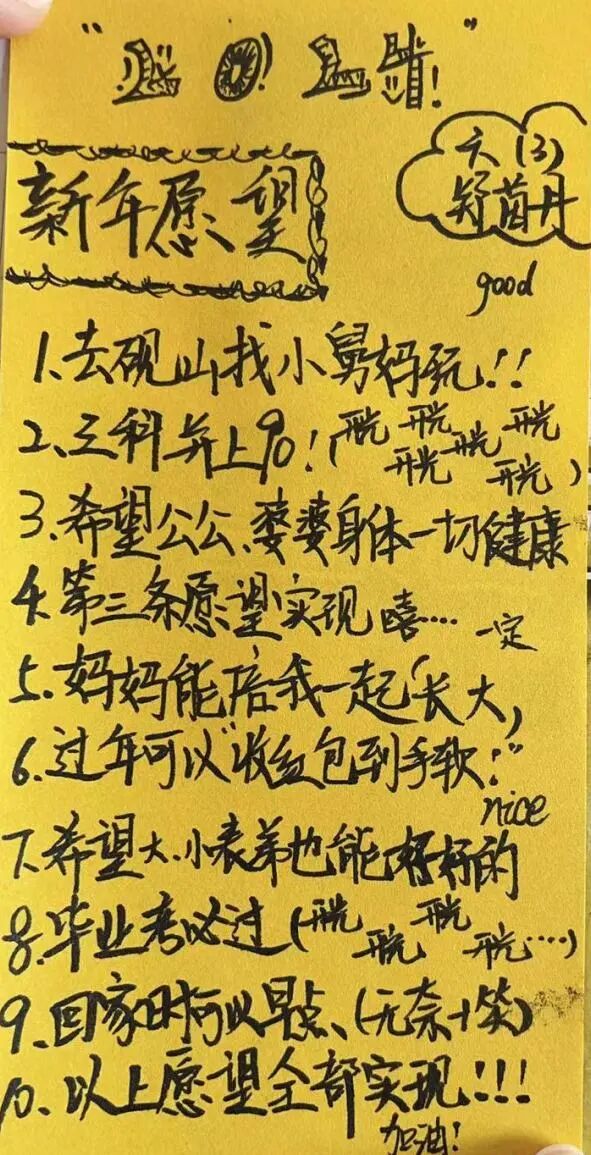 新年愿望
六(3)
舒茵丹
good
1.去砚山找小舅妈玩!!
2、三科弃上90!(开光 开光 开光 开光 开光 开光)
3.希望公公、婆婆身体一切健康
4.第三条愿望实现嘻… 一定
5.妈妈能陪我一起长大,
6.过年可以"收红包到手软:"
nice
7.希望大.小表弟也能好好的
8.毕业考必过(开光 开光 开光 开光…)
9.回家时可以早点、(无奈+笑)
10.以上愿望全部实现!!!
加油!